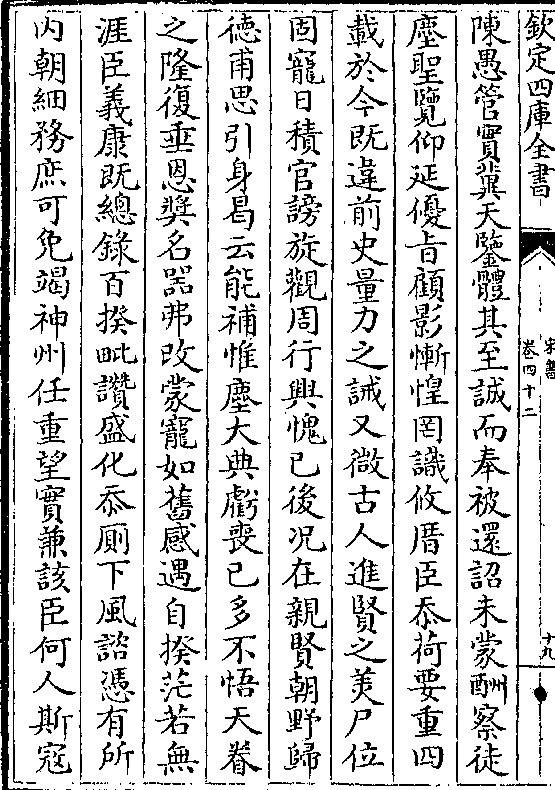 欽定四庫全書
宋書
卷四十二
十九
陳愚管實冀天鑒體其至誠而奉被還詔未蒙酬察徒
塵聖覽仰延優旨顧影慚惶罔識攸厝臣忝荷要重四
載於今既違前史量力之誡又微古人進賢之美尸位
固寵日積官謗旋觀周行興愧已後况在親賢朝野歸
德甫思引身曷云能補惟塵大典虧喪已多不悟天眷
之隆復垂恩奬名器弗改蒙寵如舊感遇自揆茫若無
涯臣義康既總錄百揆毗讚盛化忝厠下風諮憑有所
内朝細務庶可免竭神州任重望實兼該臣何人斯寇